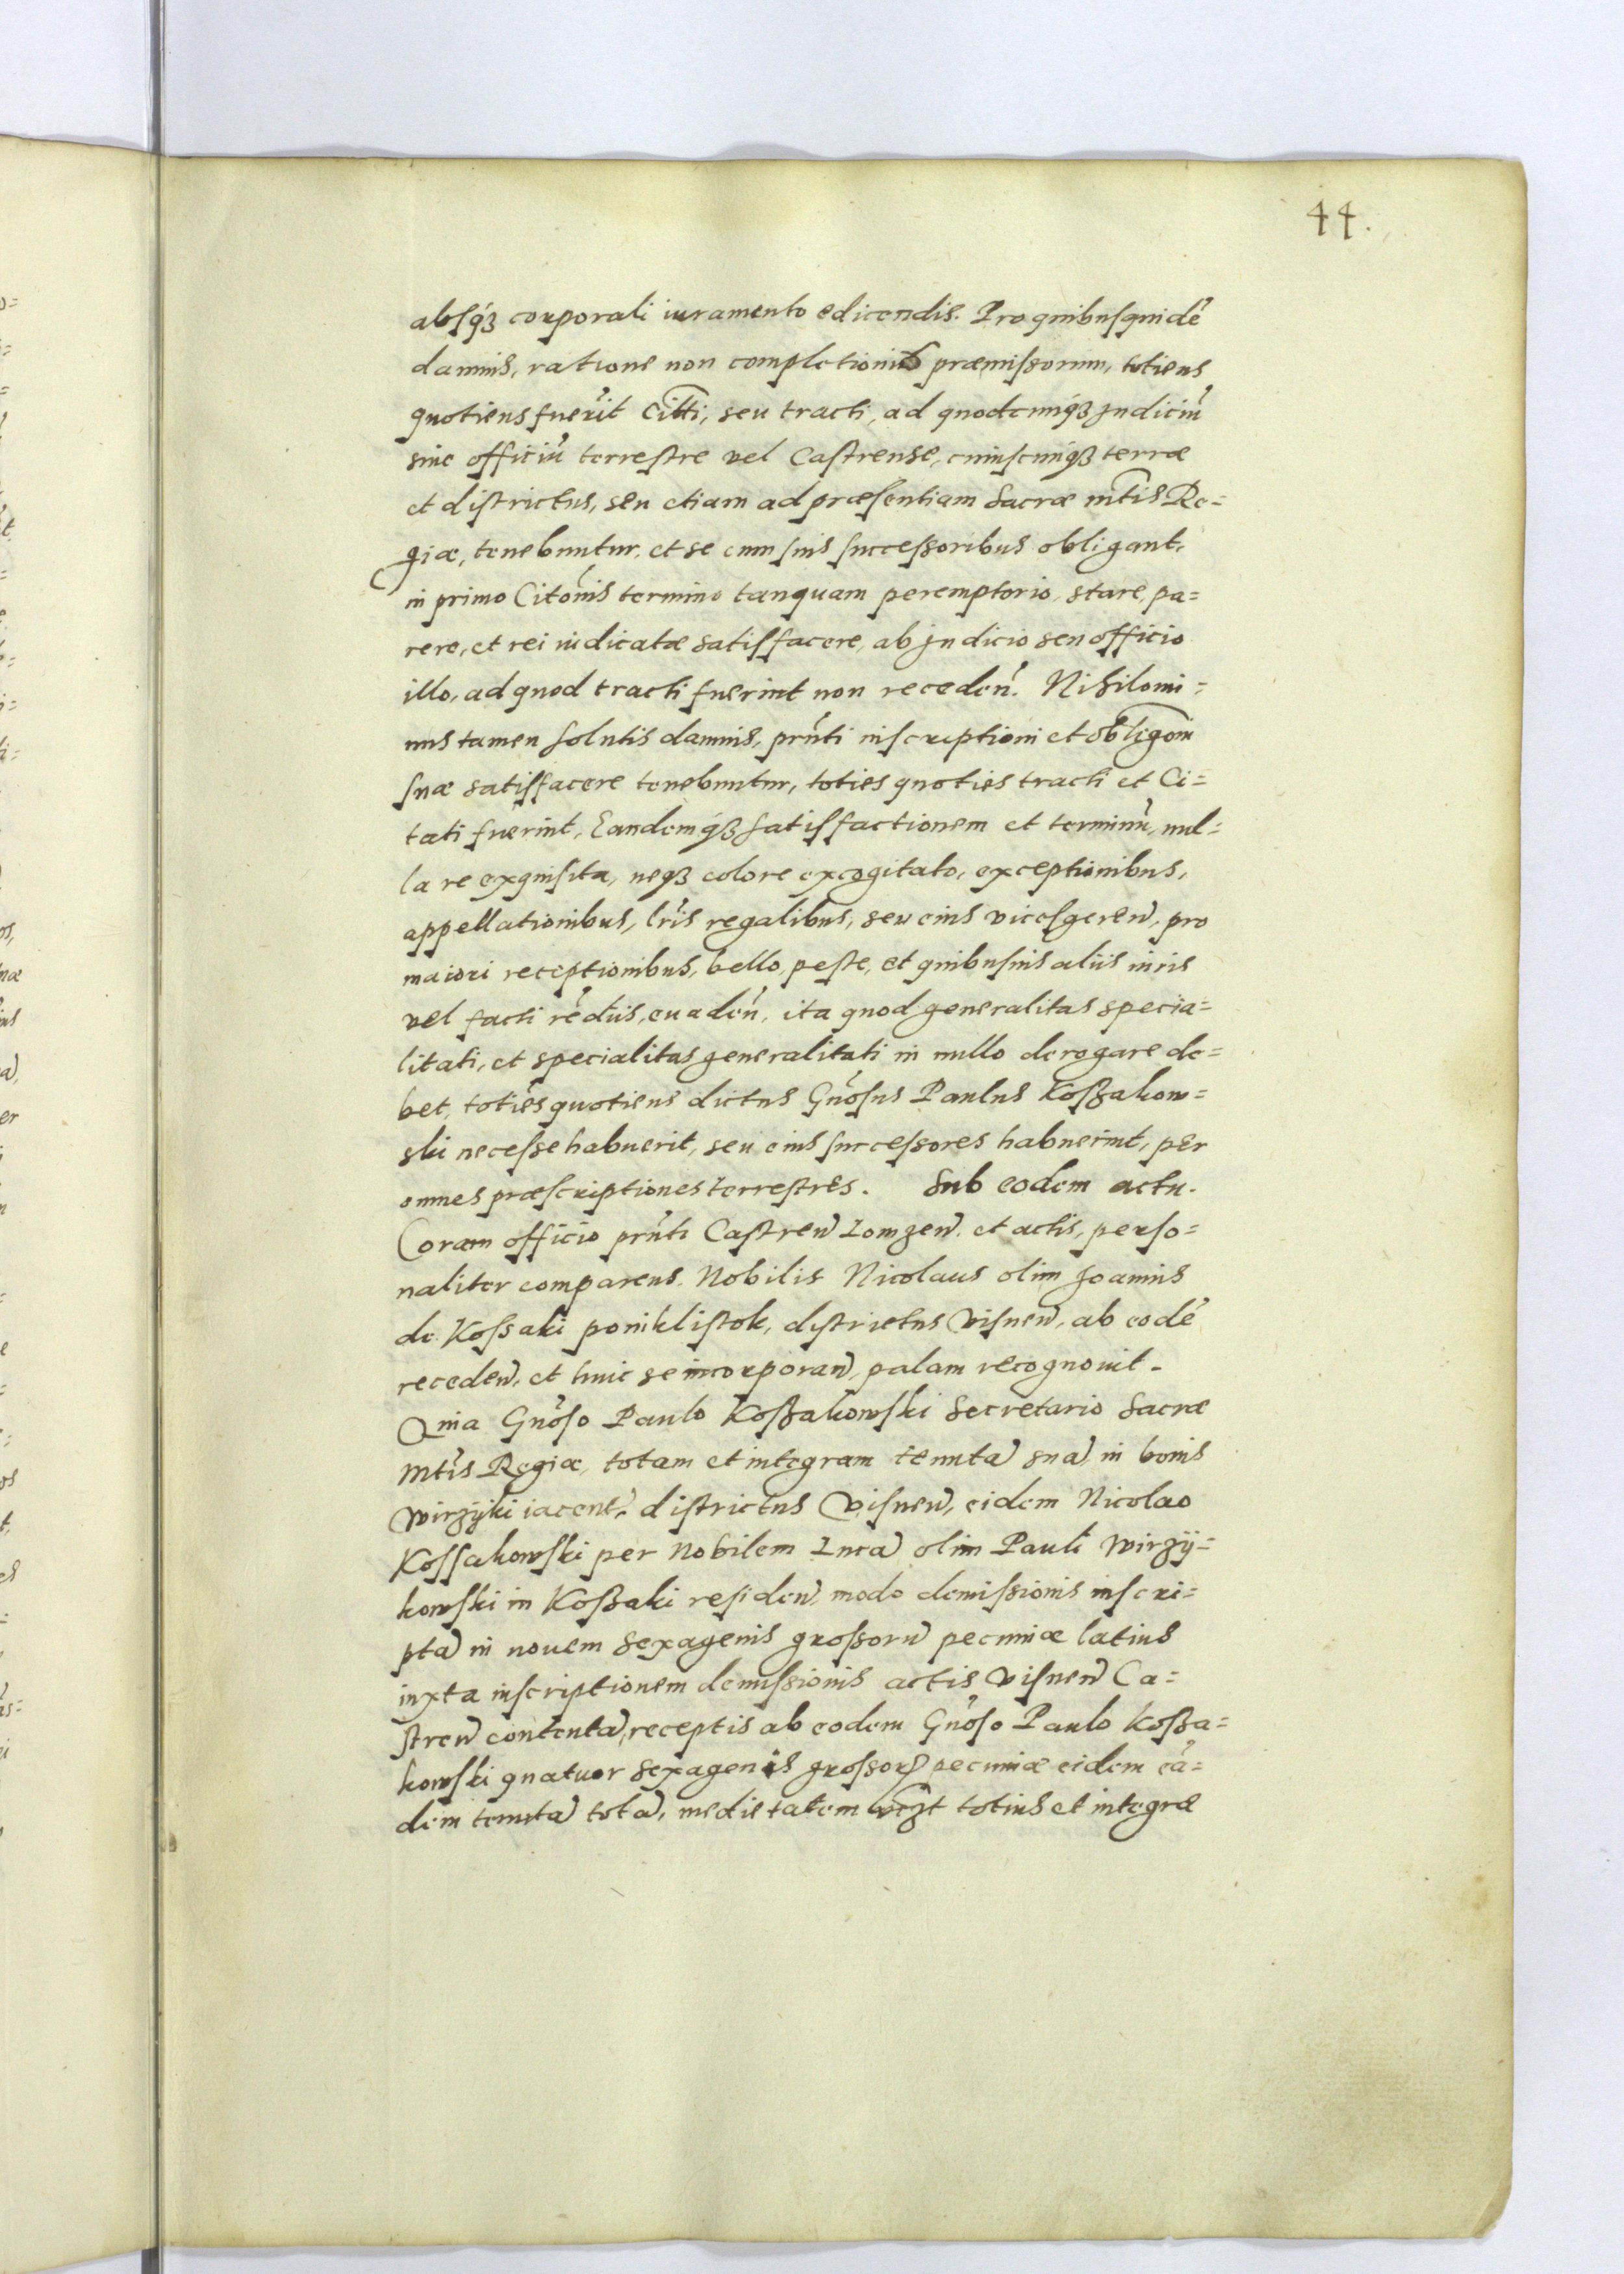 44.
absq́ꝫ corporali iuramento edicendis. Pro quibusquidē
damnis, ratione non completionis præmissorum, totiens
quotiens fuerit Citti, seu tracti, ad quodcunq́ꝫ Judiciũ
siue officiũ terrestre vel Castrense, cuiuscunq́ꝫ terræ
et districtus, seu etiam ad præsentiam Sacræ Mtis Re=
giæ, tenebuntur, et se cum suis successoribus obligant,
in primo Citõnis termino tanquam peremptorio, stare, pa=
rere, et rei iudicatæ satisfacere, ab Judicio seu officio
illo, ad quod tracti fuerint non recedeñ. Nihilomi=
nus tamen solutis damnis, prñti inscriptioni et obligõni
suæ satisfacere tenebuntur, toties quoties tracti et Ci=
tati fuerint, Eandemq́ꝫ satisfactionem et terminũ, nul=
la re exquisita, neqꝫ colore excogitato, exceptionibus,
appellationibus, lris regalibus, seu eius vicesgereñ, pro
maiori receptionibus, bello, peste, et quibusuis aliis iuris
vel facti rẽdiis, euadeñ, ita quod generalitas specia=
litati, et specialitas generalitati in nullo derogare de=
bet, toties quotiens dictus Gñosus Paulus Koßakow=
ski necesse habuerit, seu eius successores habuerint, per
omnes præscriptiones terrestres. Sub eodem actu.
Coram officio prñti Castreñ Lomzeñ. et actis, perso=
naliter comparens Nobilis Nicolaus olim Joannis
de Kossaki poniklistok, districtus Visneñ, ab eodē
recedeñ, et huic se incorporañ, palam recognouit.
Quia Gñoso Paulo Koßakowski Secretario Sacræ
Mtis Regiæ, totam et integram tenutã suã in bonis
Wirzÿki iacent. districtus Visneñ, eidem Nicolao
Kossakowski per Nobilem Lucã olim Pauli Wirzÿ=
kowski in Koßaki resideñ, modo demissionis inscri=
ptã in nouem sexagenis grossorũ pecuniæ latius
iuxta inscriptionem demissionis actis Visneñ Ca=
streñ contentã, receptis ab eodem Gñoso Paulo Koßa=
kowski quatuor sexagenis grossorꝝ pecuniæ eidem eã=
dem tenutã totã, medietatem vꝫt totius et integræ